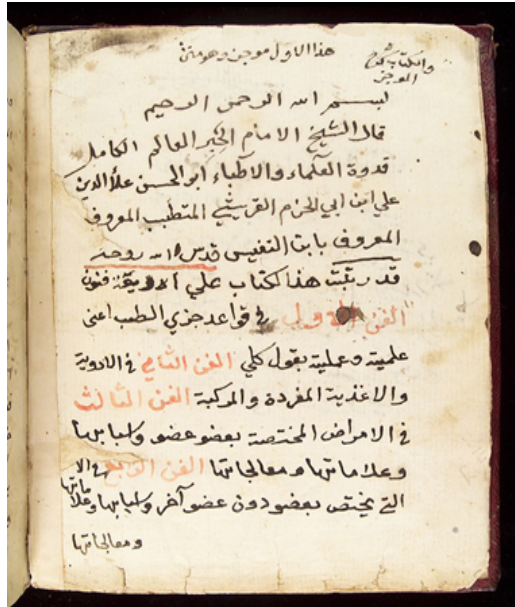 هذا الاول موجز وهو متن
والكتاب شرح
الموجز
بسم الله الرحمن الرحيم
قال الشيخ الامام الحبر العالم الكامل
قدوة العلماء والاطباء ابو الحسن علأ الدين
علي ابن ابي الحزم القرشي المتطبب المعروف
المعروف بابن النفيس قدس الله روحه
قد رتبت هذا كتاب علي الاربعة فنون
الفن الاول في قواعد جزي الطب اعني
علمية وعملية بقول كلي الفن الثاني في الادوية
والاغذية المفردة والمركبة الفن الثالث
في الامراض المختصة بعضو عضو واسبابها
وعلاماتها ومعالجاتها الفن الرابع في الا
التي يختص بعضو دون عضو آخر واسبابها وعلا
ماتها
ومعالجاتها